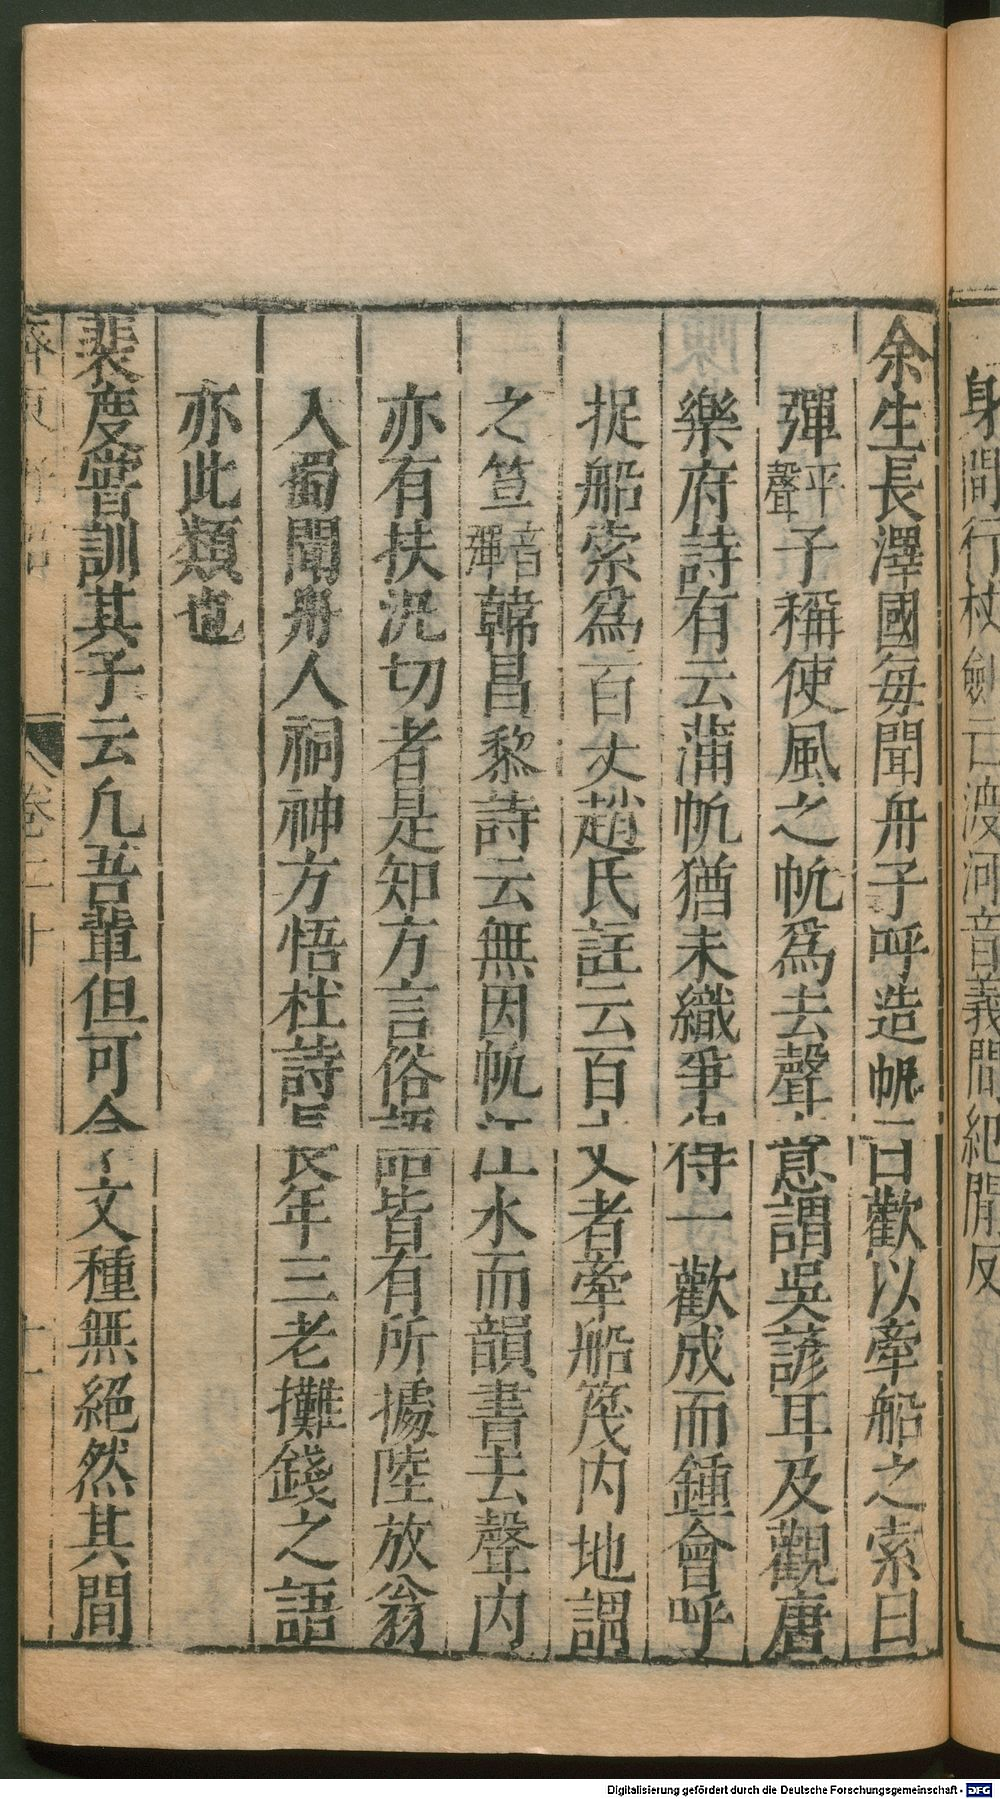 身間行杖劍亡渡河音義間紀閒反
余生長澤國每聞舟子呼造帆曰歡以牽船之索曰
彈平聲子稱使風之帆爲去聲意謂吳諺耳及觀唐
樂府詩有云蒲帆猶未織爭得一歡成而鍾會呼
捉船索爲百丈趙氏註云百丈者牽船篾内地謂
之笪音彈韓昌黎詩云無因帆江水而韻書去聲内
亦有扶汎切者是知方言俗語皆有所據陸放翁
入蜀聞舟人祠神方悟杜詩長年三老攤錢之語
亦此類也
裴度嘗訓其子云凡吾輩但可令文種無絕然其間
卷二十
Digitalisierung gefördert durch die Deutsche Forschungsgemeinschaft - DFG